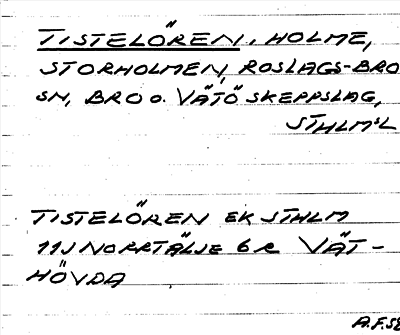 TISTELÖREN, HOLME,
STORHOLMEN, ROSLAGS-BRO
SN, BRO o. VÄTÖ SKEPPSLAG,
STHLMSL
TISTELÖREN EK STHLM
11J NORRTÄLJE 6 R VÄT-
HÖVDA